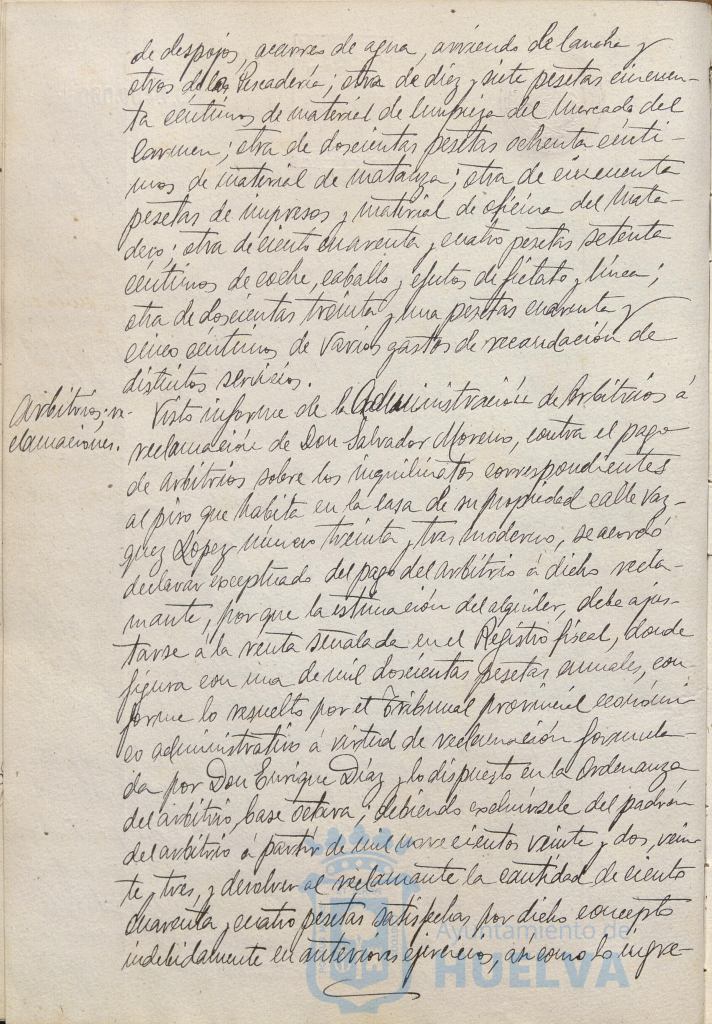 de despojos, acarreo de agua, arriendo de lancha y
otros de la Pescadería; otra de diez y siete pesetas cincuen-
ta céntimos de material de limpieza del Mercado del
Carmen; otra de doscientas pesetas ochenta cénti-
mos de material de matanza; otra de cincuenta
pesetas de impresos y material de oficina del Mata-
dero; otra de ciento cuarenta y cuatro pesetas setenta
céntimos de coche, caballo y efectos de fielato y línea;
otra de doscientas treinta y una pesetas cuarenta y
cinco céntimos de varios gastos de recaudación de
distintos servicios.
Arbitrios; re-
clamaciones.
Visto informe de la Administración de Arbitrios á
reclamación de Don Salvador Moreno, contra el pago
de arbitrios sobre los inquilinatos correspondientes
al piso que habita en la casa de su propiedad calle Vaz-
quez Lopez número treinta y tres moderno, se acordó
declarar exceptuado del pago del arbitrio á dicho recla-
mante, porque la estimación del alquiler, debe ajus-
tarse á la renta señalada en el Registro fiscal, donde
figura con una de mil doscientas pesetas anuales, con
forme lo resuelto por el Tribunal provincial económi
co administrativo á virtud de reclamación formula-
da por Don Enrique Díaz y lo dispuesto en la Ordenanza
del arbitrio, base octava; debiendo excluírsele del padrón
del arbitrio á partir de mil novecientos veinte y dos, vein
te y tres, y devolver al reclamante la cantidad de ciento
cuarenta y cuatro pesetas satisfechas por dicho concepto
indebidamente en anteriores ejercicios, así como lo ingre-
Ayuntamiento de
HUELVA